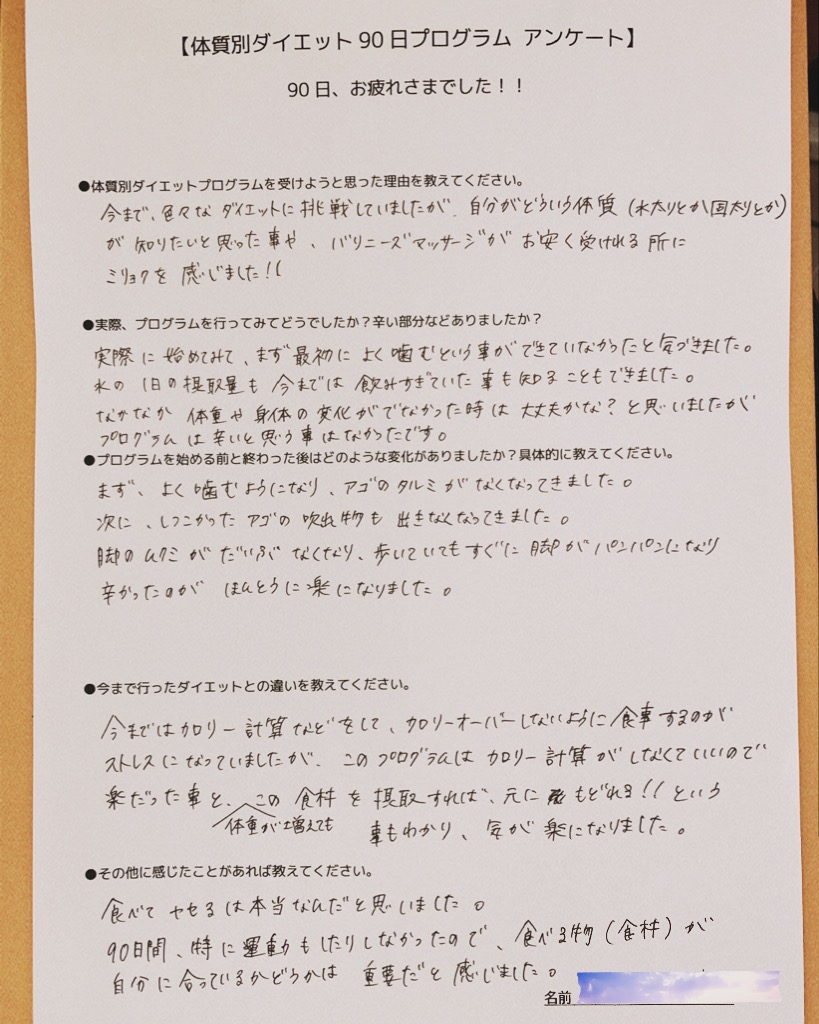 【体質別ダイエット90日プログラム アンケート】
90日、お疲れさまでした！！
●体質別ダイエットプログラムを受けようと思った理由を教えてください。
今まで、色々なダイエットに挑戦していましたが、自分がどういう体質(水太りとか固太りとか)
が知りたいと思った事や、バリニーズマッサージがお安く受けれる所に
ミリョクを感じました!!
●実際、プログラムを行ってみてどうでしたか？辛い部分などありましたか？
実際に始めてみて、まず最初によく噛むという事ができていなかったと気づきました。
水の1日の摂取量も今までは飲みすぎていた事も知ることもできました。
なかなか体重や身体の変化がでなかった時は大丈夫かな?と思いましたが
プログラムは辛いと思う事はなかったです。
●プログラムを始める前と終わった後はどのような変化がありましたか？具体的に教えてください。
まず、よく噛むようになり、アゴのタルミがなくなってきました。
次に、しつこかったアゴの吹出物も出きなくなってきました。
脚のムクミがだいぶなくなり、歩いていてもすぐに脚がパンパンになり
辛かったのがほんとうに楽になりました。
●今まで行ったダイエットとの違いを教えてください。
今まではカロリー計算などをして、カロリーオーバーしないように食事するのが
ストレスになっていましたが、このプログラムはカロリー計算がしなくていいので
楽だった事と、この食材を摂取すれば、元にもどれる!!という
体重が増えても
事もわかり、気が楽になりました。
●その他に感じたことがあれば教えてください。
食べてヤセるは本当なんだと思いました。
90日間、特に運動もしたりしなかったので、食べる物(食材)が
自分に合っているかどうかは重要だと感じました。
名前